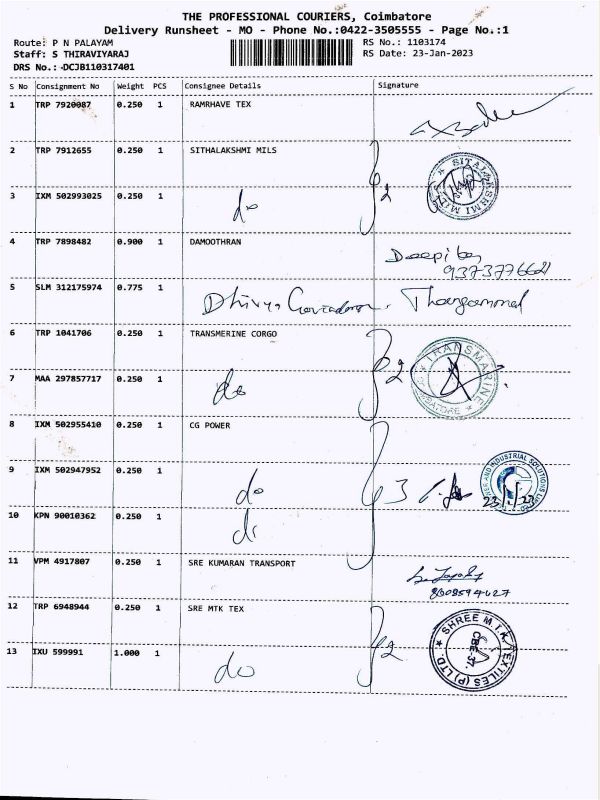 THE PROFESSIONAL COURIERS, Coimbatore
Delivery Runsheet - MO - Phone No.:0422-3505555 - Page No.:1
Route: P N PALAYAM RS No.: 1103174
Staff: S THIRAVIYARAJ RS Date: 23-Jan-2023
DRS No.:-DCJB110317401
S No Consignment No Weight PCS Consignee Details Signature
1 TRP 7920087 0.250 1 RAMRHAVE TEX
2 TRP 7912655 0.250 1 SITHALAKSHMI MILS
3 IXM 502993025 0.250 1 do 2
4 TRP 7898482 0.900 1 DAMOOTHRAN
5 SLM 312175974 0.775 1 Thangammal
6 TRP 1041706 0.250 1 TRANSMERINE CORGO TRANSMARINE
7 MAA 297857717 0.250 1 do 2
8 IXM 502955410 0.250 1 CG POWER
9 IXM 502947952 0.250 1 do 3
10 KPN 90010362 0.250 1
11 VPM 4917807 0.250 1 SRE KUMARAN TRANSPORT
12 TRP 6948944 0.250 1 SRE MTK TEX
13 IXU 599991 1.000 1 do 2